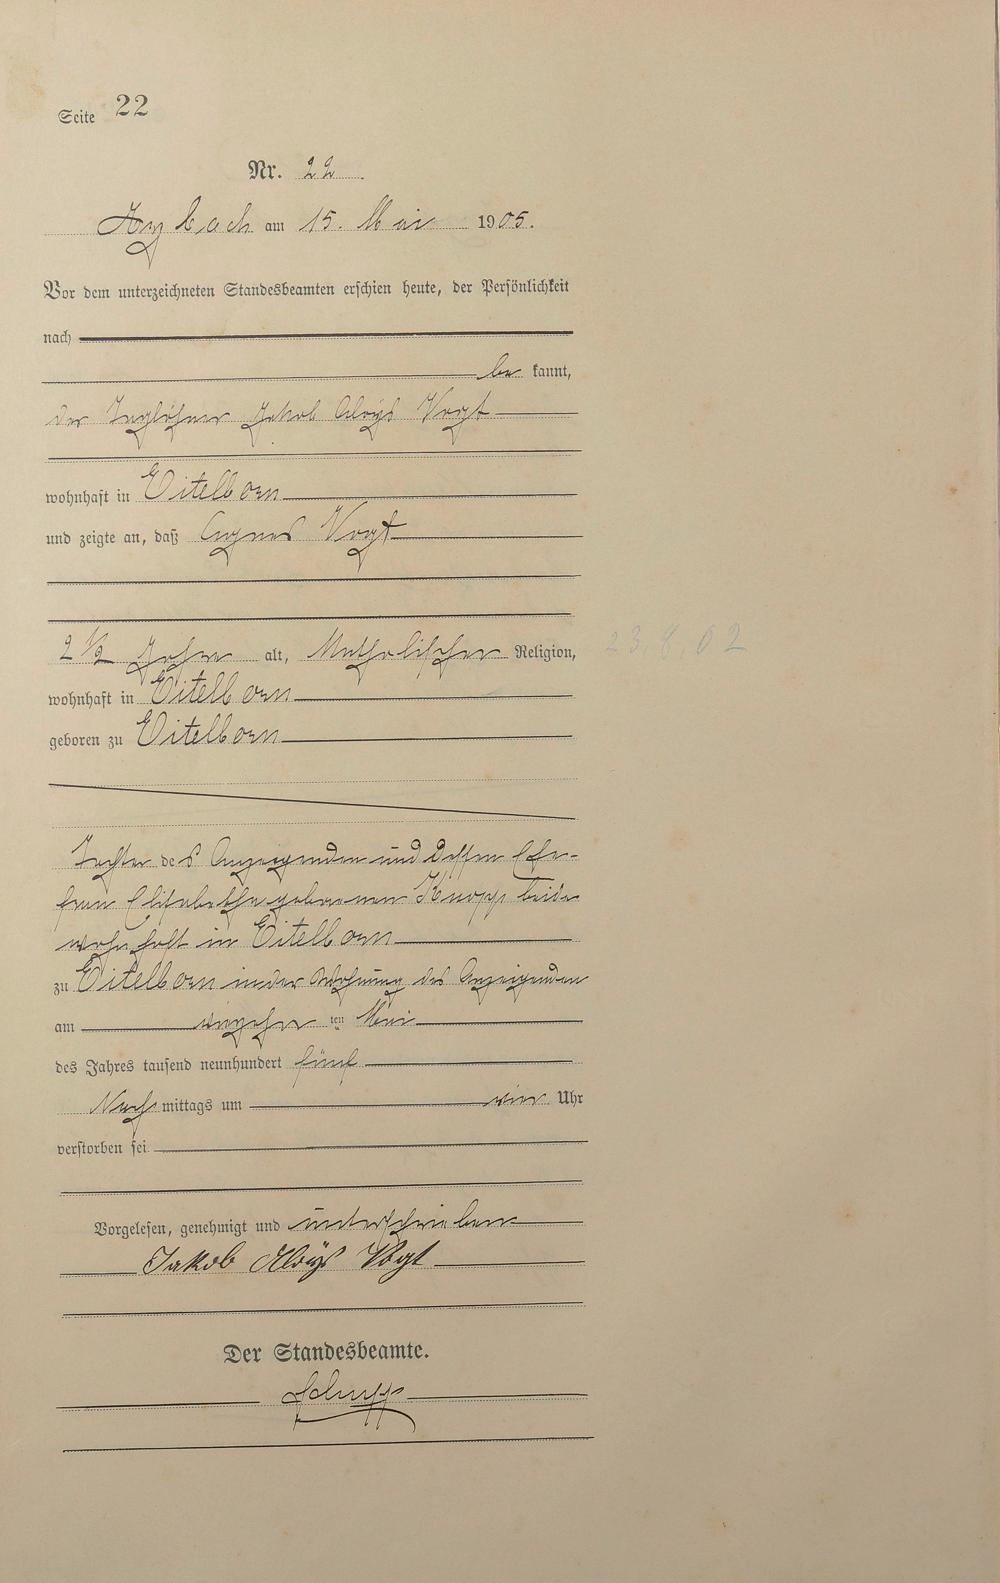 Seite 22
Nr. 22
Arzbach am 15. Mai 1905.
Vor dem unterzeichneten Standesbeamten erschien heute, der Persönlichkeit
nach
be kannt,
der Taglöhner Jakob Aloys Vogt
wohnhaft in Eitelborn
und zeigte an, daß Agnes Vogt
2 1/2 Jahre alt, katholischer Religion, 23.8.02
wohnhaft in Eitelborn
geboren zu Eitelborn
Tochter des Anzeigenden und dessen Ehe-
frau Elisabetha geborenen Knopp beide
wohnhaft in Eitelborn
zu Eitelborn in der Wohnung des Anzeigenden
am ten Mai
des Jahres tausend neunhundert fünf
Nach mittags um vier Uhr
verstorben sei
Vorgelesen, genehmigt und unterschrieben
Jakob Aloys Vogt
Der Standesbeamte.
Schupp